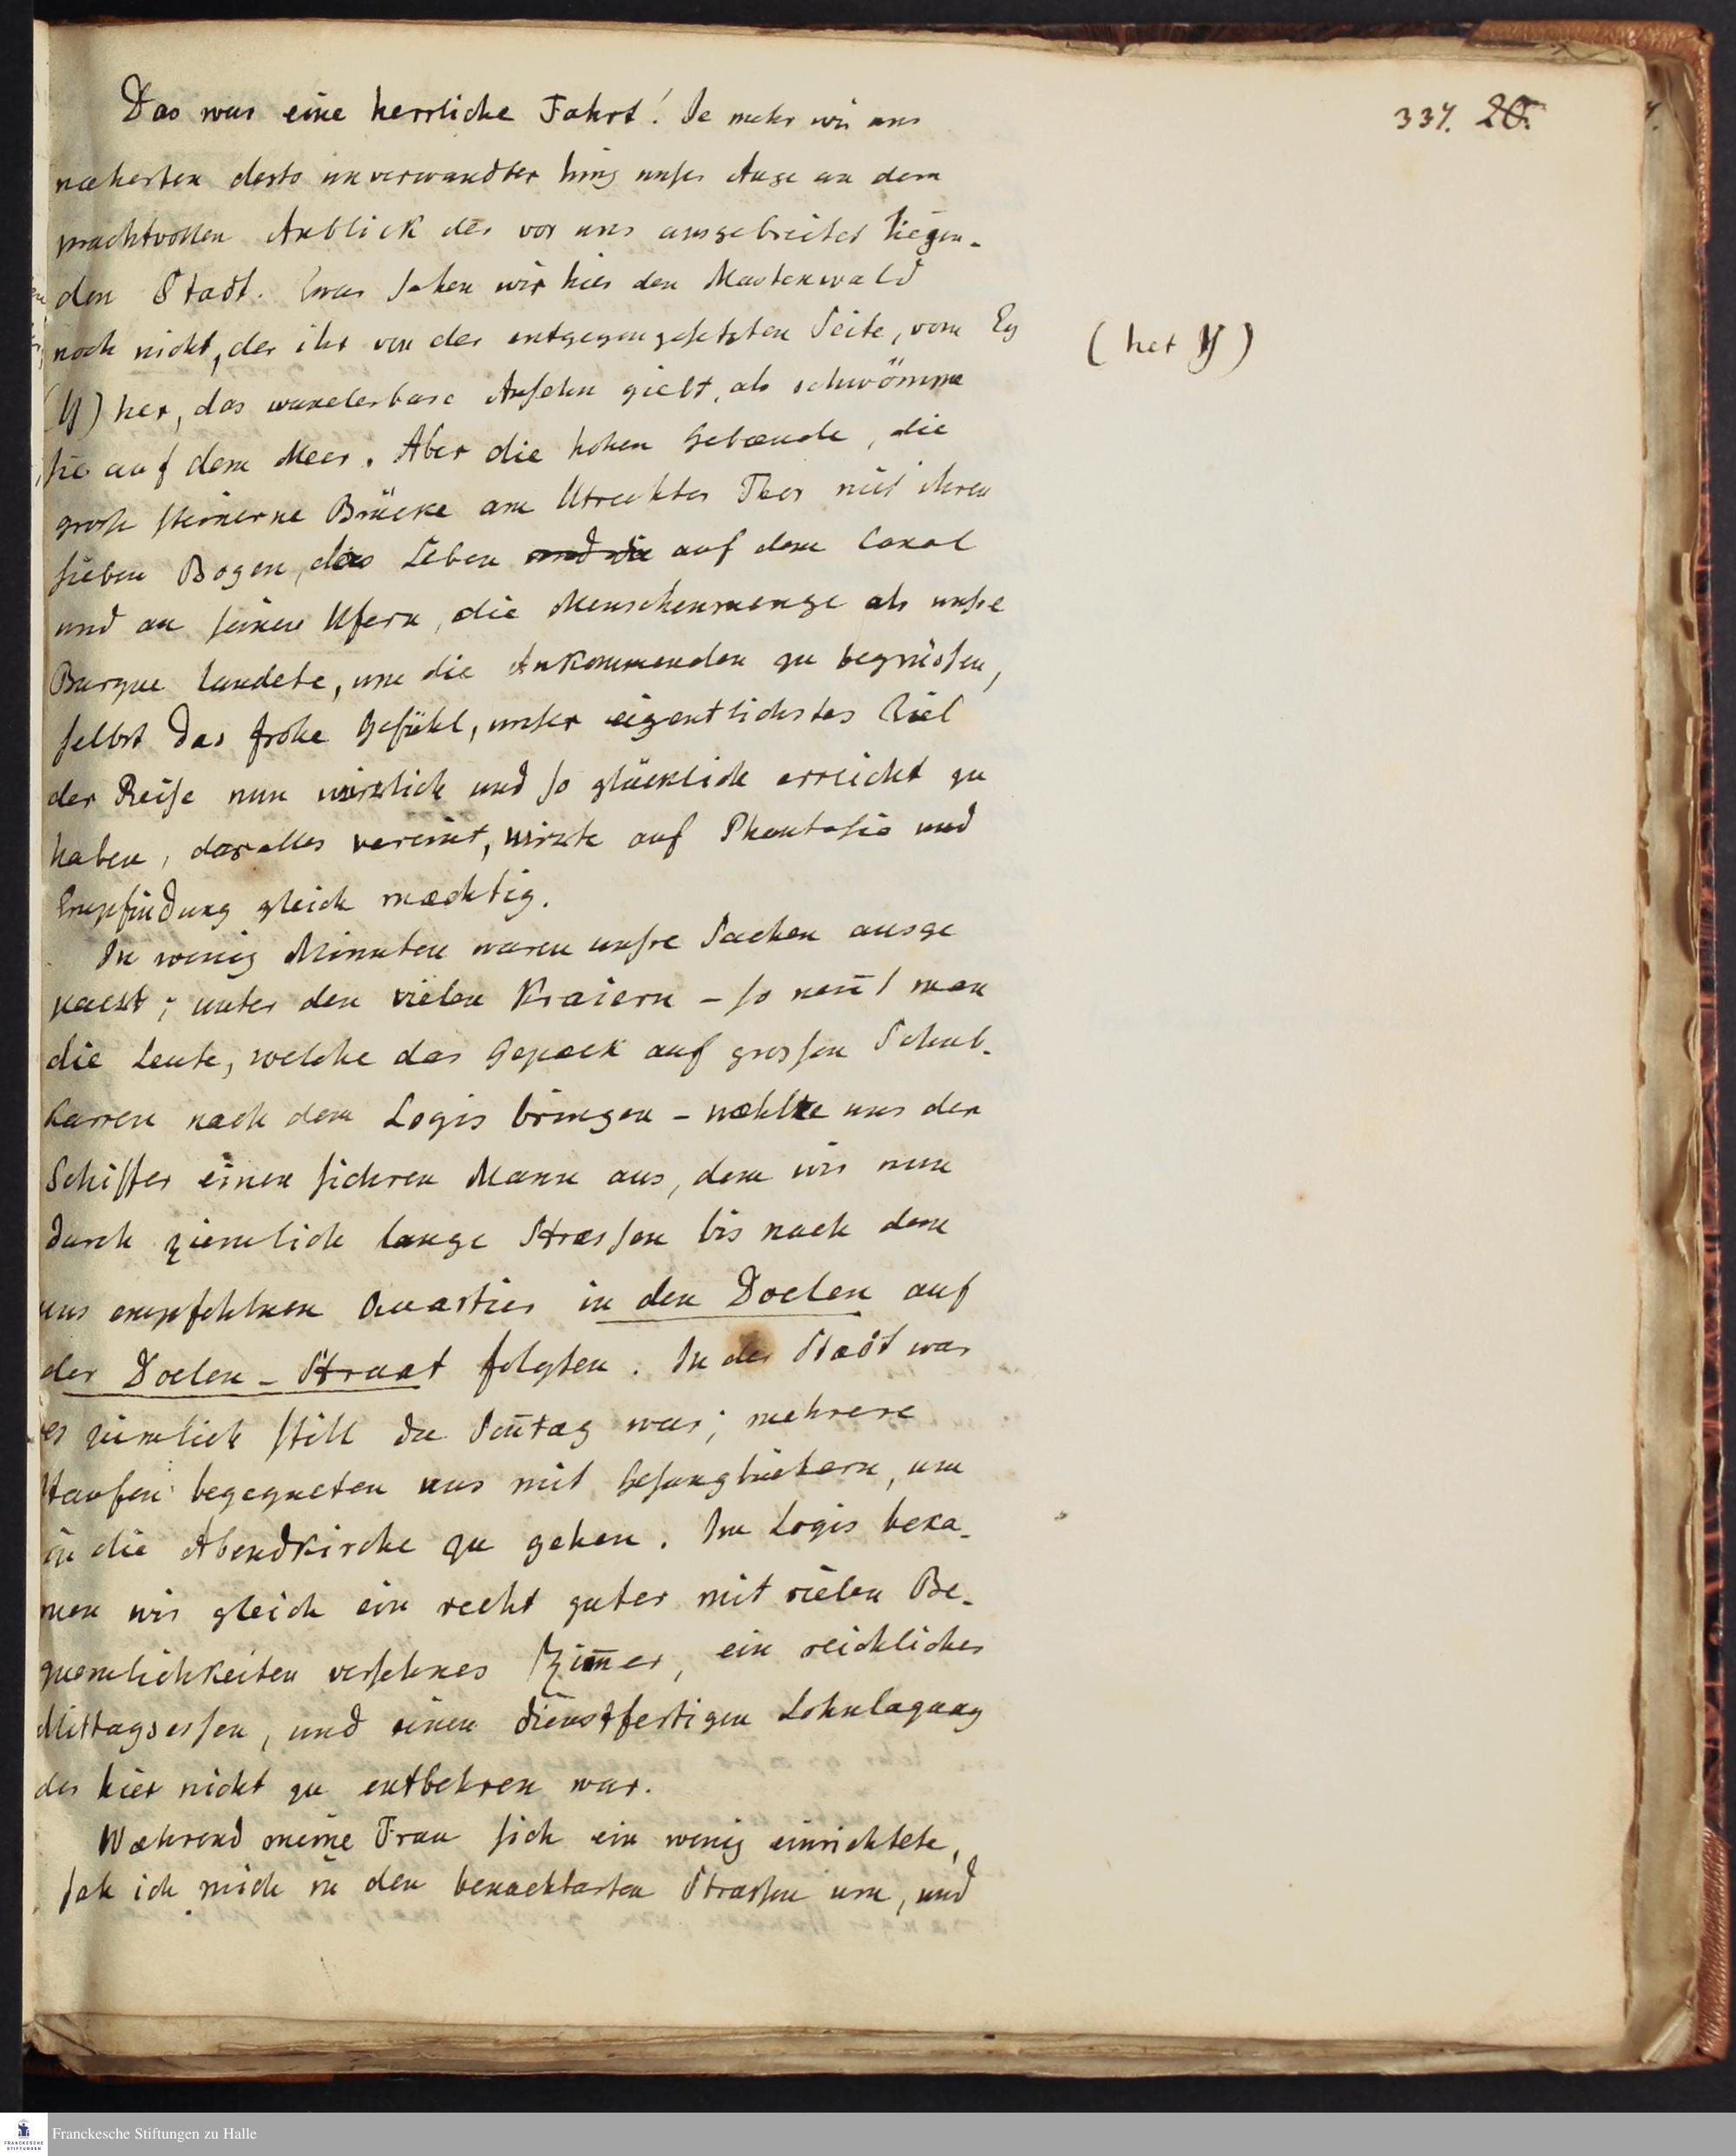 337. 20.
Das war eine herrliche Fahrt! Je mehr wir uns
næherten desto unverwandter hing unser Auge an dem
prachtvollen Anblick der vor uns ausgebreitet liegen-
den Stadt. Zwar sahen wir hier den Mastenwald
noch nicht, der ihr von der entgegengesetzten Seite, vom Ey
(Y) her, das wunderbare Ansehn giebt, als schwömme
(het Y)
sie auf dem Meer. Aber die hohen Gebæude, die
grosse steinerne Brücke am Utrechter Thor mit ihren
sieben Bogen, das Leben und die auf dem Canal
und an seinen Ufern, die Menschenmenge als unsre
Barque landete, um die Ankommenden zu begrüssen,
selbst das frohe Gefühl, unser eigentlichstes Ziel
der Reise nun wirklich und so glücklich erreicht zu
haben, das alles vereint, wirkte auf Phantasie und
Empfindung gleich mæchtig.
In wenig Minuten waren unsre Sachen ausge
packt; unter den vielen Kraiern - so neñt man
die Leute, welche das Gepæck auf grossen Schub-
karren nach dem Logis bringen - wæhlte uns der
Schiffer einen sichren Mann aus, dem wir nun
durch ziemlich lange Strassen bis nach dem
uns empfohlnen Quartier in den Doelen auf
der Doelen-Straat folgten. In der Stadt war
es ziemlich still da Soñtag war; mehrere
Haufen begegneten uns mit Gesangbüchern, um
in die Abendkirche zu gehen. Im Logis beka-
men wir gleich ein recht gutes mit vielen Be-
quemlichkeiten versehnes Zim̄er, ein reichliches
Mittagsessen, und einen dienstfertigen Lohnlaquay
der hier nicht zu entbehren war.
Wæhrend meine Frau sich ein wenig einrichtete,
sah ich mich in den benachbarten Strassen um, und
Franckesche Stiftungen zu Halle